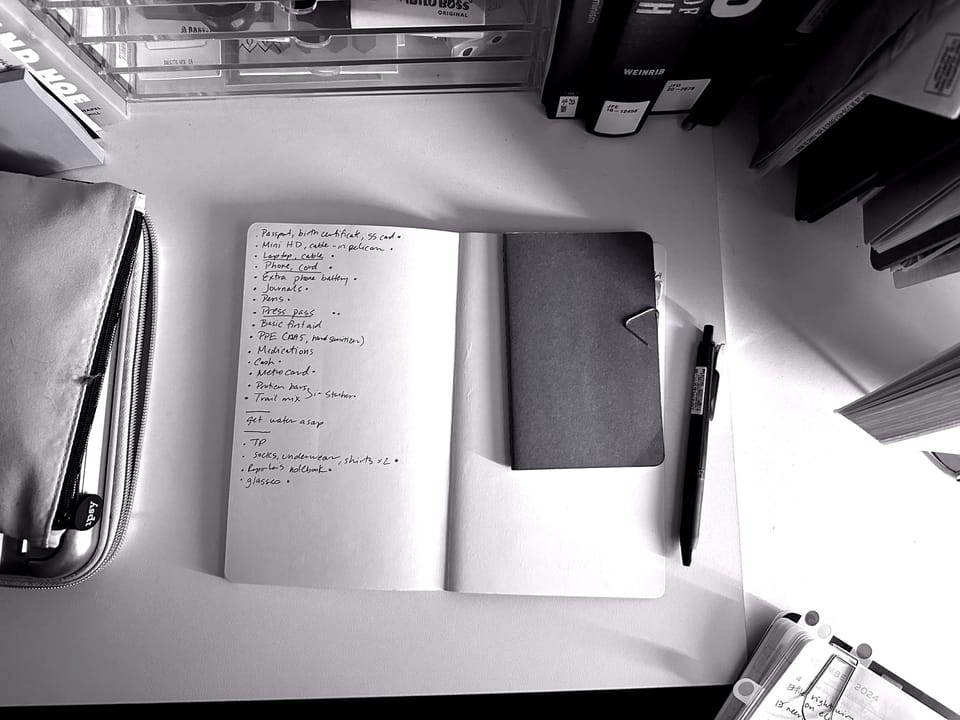 ORIGINAL
WEINRIB
JFE
JFD
ipsy
. Passport, birth certificate, SS card •
• Mini HD, cable - in pelican •
• Laptop, cable •
• Phone, cord •
• Extra phone battery •
• Journals •
• Pens •
• Press pass ••
• Basic first aid
• PPE (KN95, hand sanitizer)
• Medications
• Cash •
• Metrocard •
• Protien bars
• Trail mix
get water asap
• TP
. socks, underwear, shirts x2 •
• Reporter's notebook •
• glasses •
2024